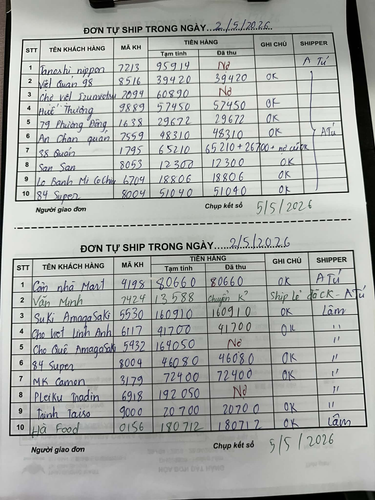 ĐƠN TỰ SHIP TRONG NGÀY 2/5/2026
STT TÊN KHÁCH HÀNG MÃ KH TIỀN HÀNG GHI CHÚ SHIPPER
Tạm tính Đã thu
1 Tanoshi nippon 7213 95914 Nợ A Tú
2 Việt Quán 98 8516 39420 39420 OK
3 Chợ việt 7094 60890 Nợ
4 Huế Thương 9889 57450 57450 OK
5 79 Phương Đông 1638 29672 29672 OK
6 An Chan quán 7559 48310 48310 OK A Tú
7 38 Quán 1795 65210 65210 + 26700 + nợ cũ OK
8 San San 8053 12300 12300 OK
9 Lò Bánh Mì 6704 18806 18806 OK
10 84 Super 8004 51040 51040 OK
Người giao đơn Chụp kết sổ 5/5/2026
ĐƠN TỰ SHIP TRONG NGÀY 2/5/2026
STT TÊN KHÁCH HÀNG MÃ KH TIỀN HÀNG GHI CHÚ SHIPPER
Tạm tính Đã thu
1 Căn nhà Mart 4198 80660 80660 OK A Tú
2 Văn Minh 7424 13588 Chuyển K? Ship lẻ đã CK - A Tú
3 Suki Amagasaki 5530 160910 160910 OK Lâm
4 Chợ Việt Linh Anh 6117 41700 41700 OK "
5 Chợ Quê Amagasaki 5432 164050 Nợ "
6 84 Super 8004 46080 46080 OK "
7 MK Camon 3179 72400 72400 OK "
8 Pleiku 6918 192050 Nợ "
9 Trinh Taiso 9000 20700 20700 OK "
10 Hà Food 0156 180712 180712 OK Lâm
Người giao đơn Chụp kết sổ 5/5/2026